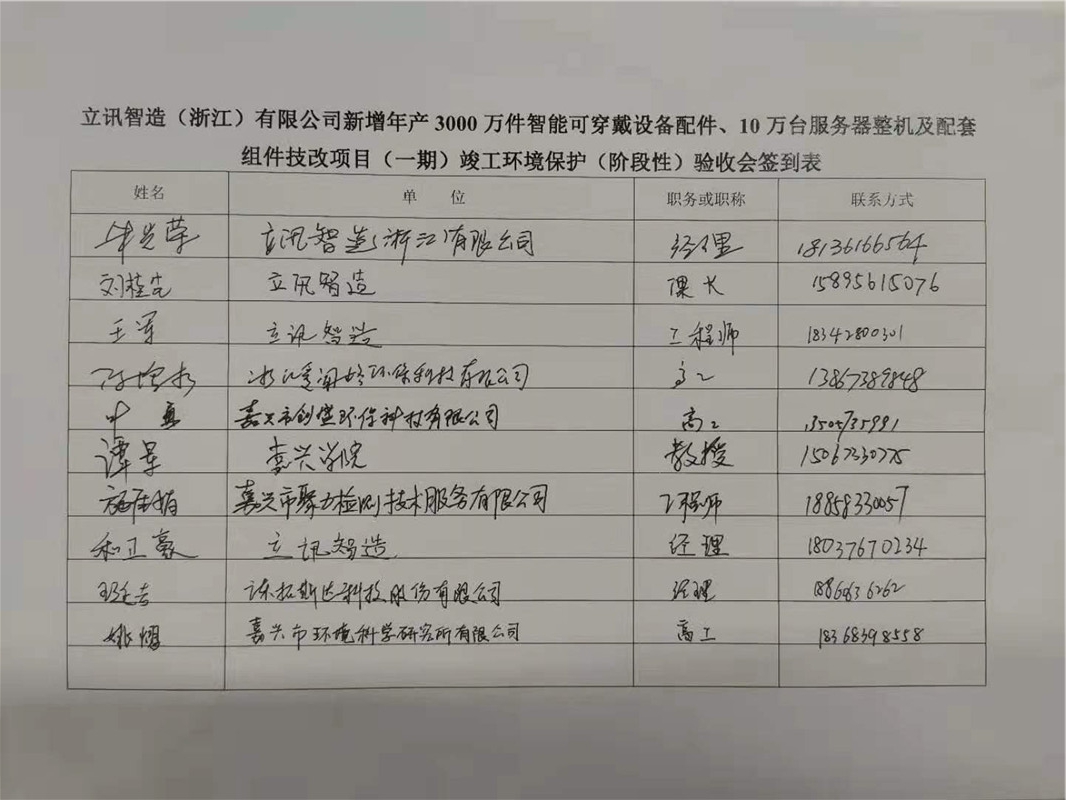 立讯智造（浙江）有限公司新增年产3000万件智能可穿戴设备配件、10万台服务器整机及配套
组件技改项目（一期）竣工环境保护（阶段性）验收会签到表
姓名 单位 职务或职称 联系方式
立讯智造(浙江)有限公司 经理 18136166564
刘桂先 立讯智造 课长 15895615076
王军 立讯智造 工程师 18342800301
环保科技有限公司 高工 13867389848
叶 嘉兴市创盛环保科技有限公司 高工 13505735991
谭旱 嘉兴学院 教授 15067330775
嘉兴市聚力检测技术服务有限公司 工程师 18858330057
和正豪 立讯智造 经理 18037670234
科技股份有限公司 经理
姚熠 嘉兴市环境科学研究所有限公司 高工 18368398558